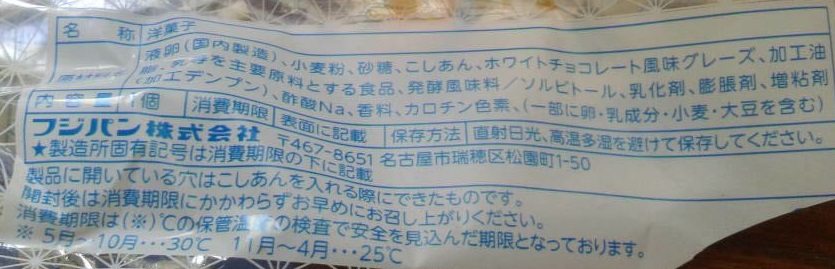 名称 洋菓子
液卵(国内製造)、小麦粉、砂糖、こしあん、ホワイトチョコレート風味グレーズ、加工油
脂、乳等を主要原料とする食品、発酵風味料/ソルビトール、乳化剤、膨脹剤、増粘剤
(加工デンプン)、酢酸Na、香料、カロチン色素、(一部に卵・乳成分・小麦・大豆を含む)
内容量 1個 消費期限 表面に記載 保存方法 直射日光、高温多湿を避けて保存してください。
フジパン株式会社 〒467-8651 名古屋市瑞穂区松園町1-50
★製造所固有記号は消費期限の下に記載
製品に開いている穴はこしあんを入れる際にできたものです。
開封後は消費期限にかかわらずお早めにお召し上がりください。
消費期限は(※)℃の保管温度の検査で安全を見込んだ期限となっております。
※ 5月~10月・・・30℃ 11月~4月・・・25℃